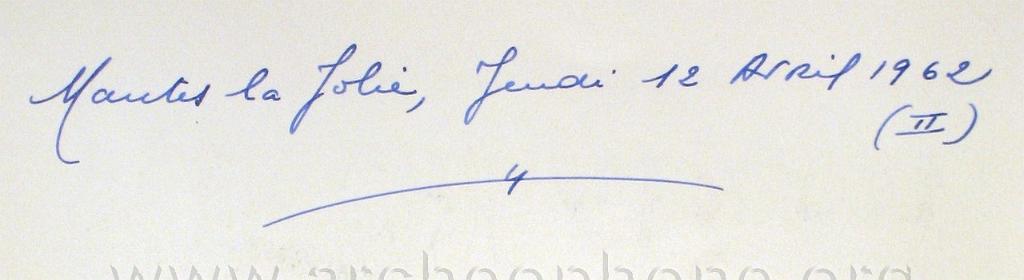 Mantes la Jolie, Jeudi 12 Avril 1962
(II)
www.archeophone.org